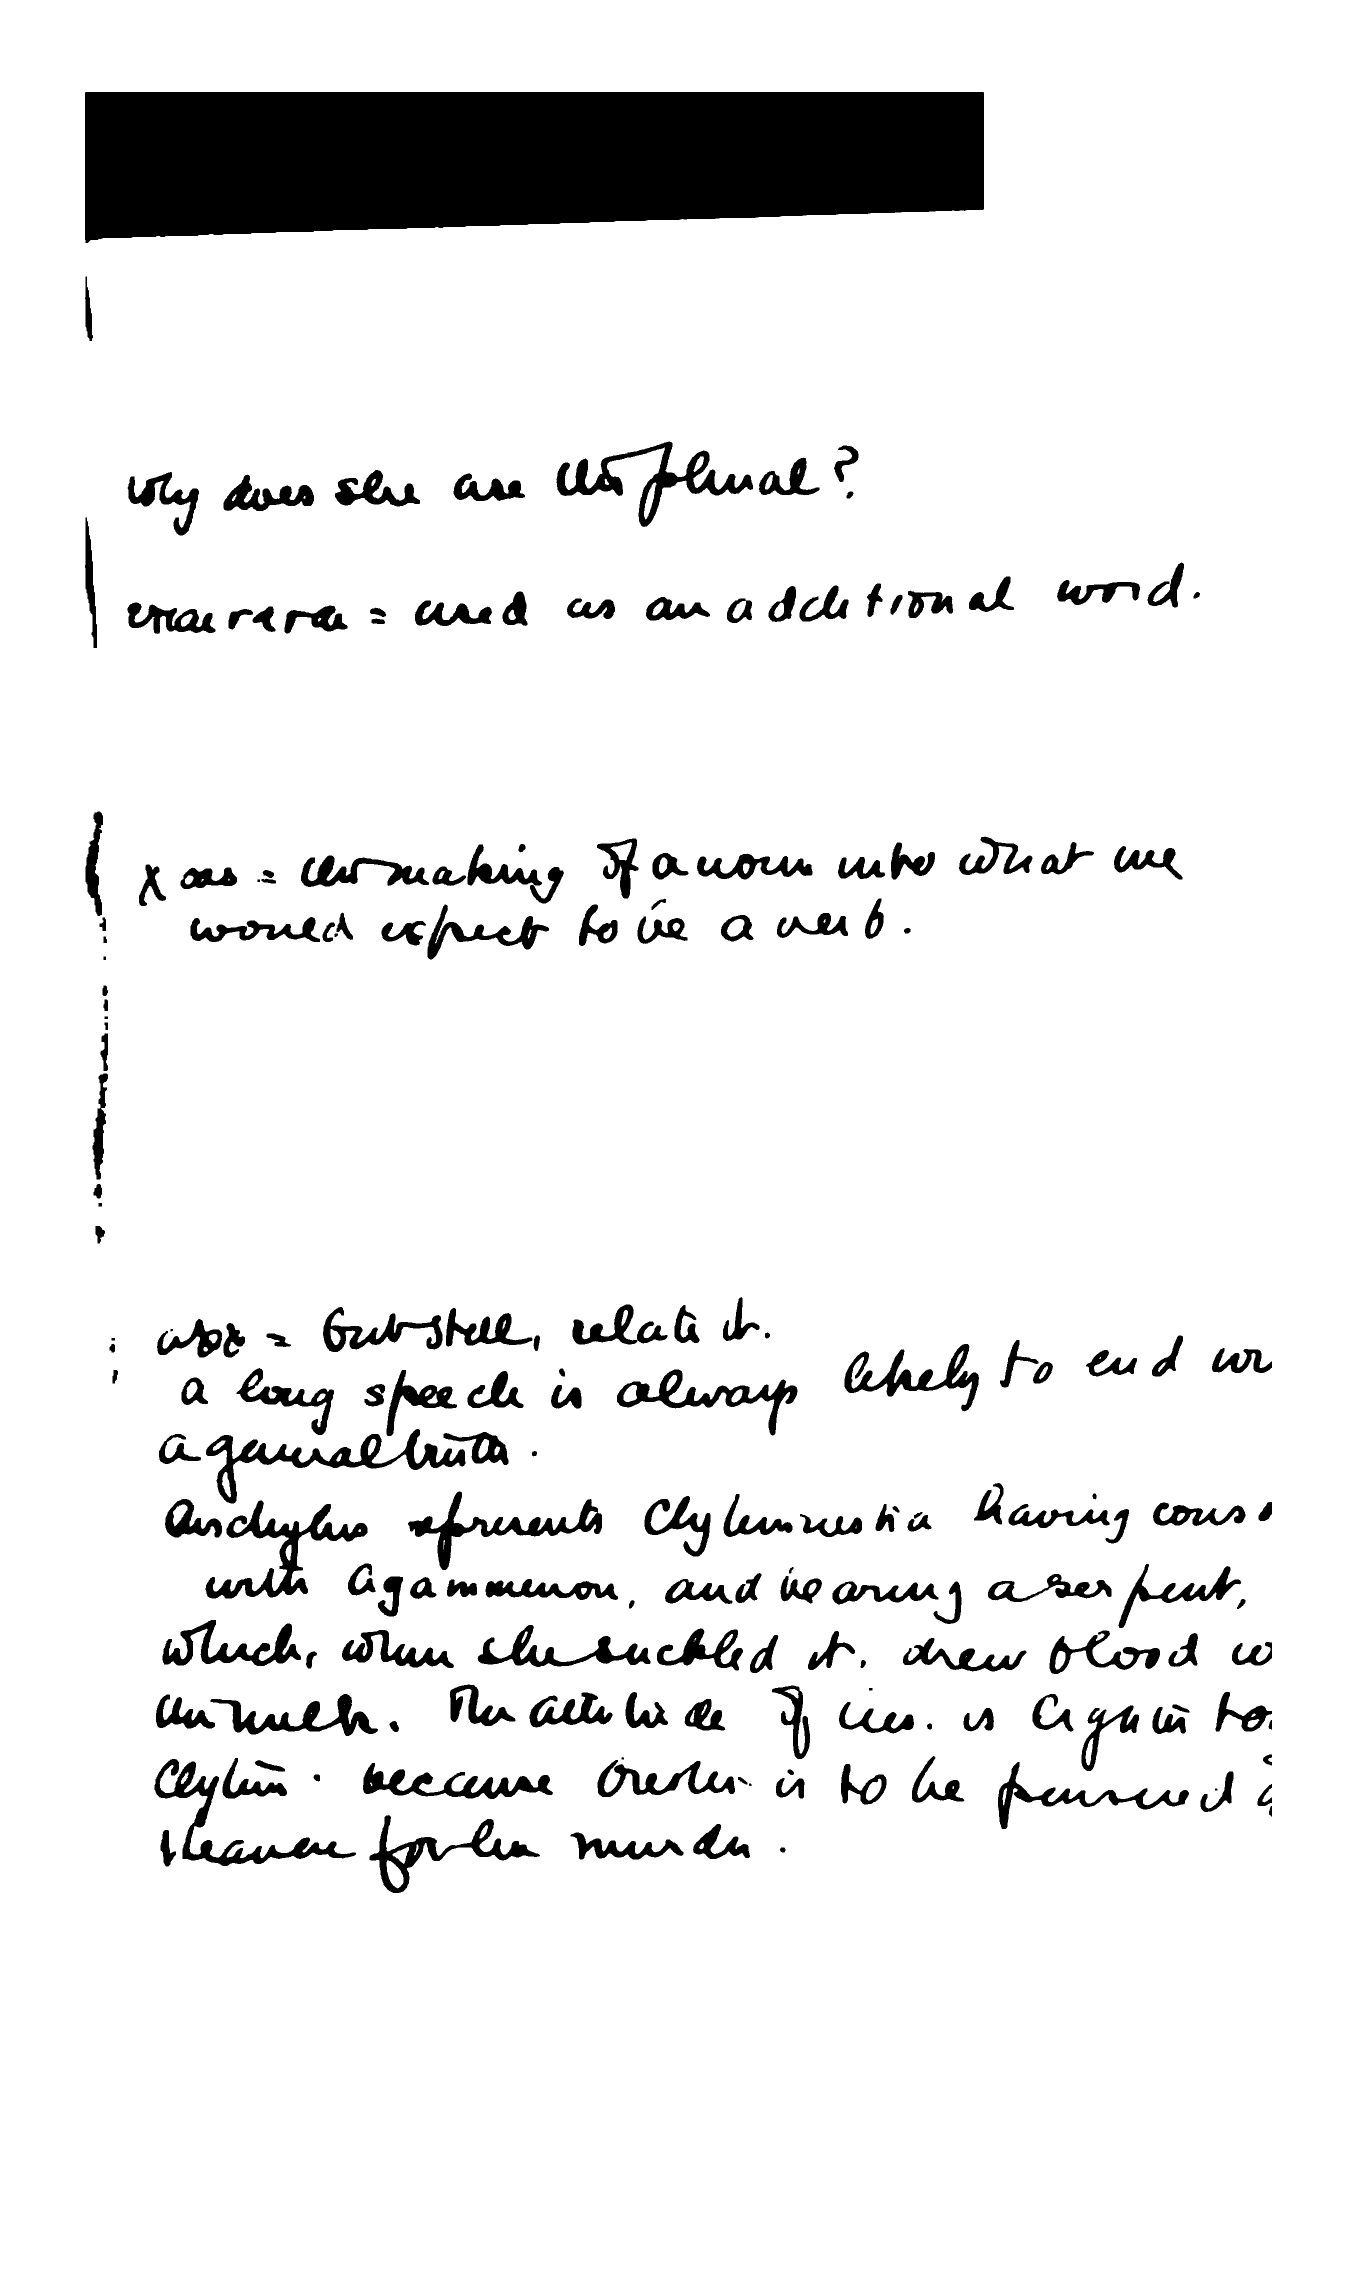 Why does she use the plural?
= used as an additional word.
= the making of a noun into what we
would expect to be a verb.
= but still, relate it.
a long speech is always likely to end
a general truth.
Aeschylus represents Clytemnestra having
with Agammenon, and bearing a serpent,
which, when she suckled it, drew blood
the milk. The attitude of is again
Clytem. because Orestes is to be pursued
for her murder.